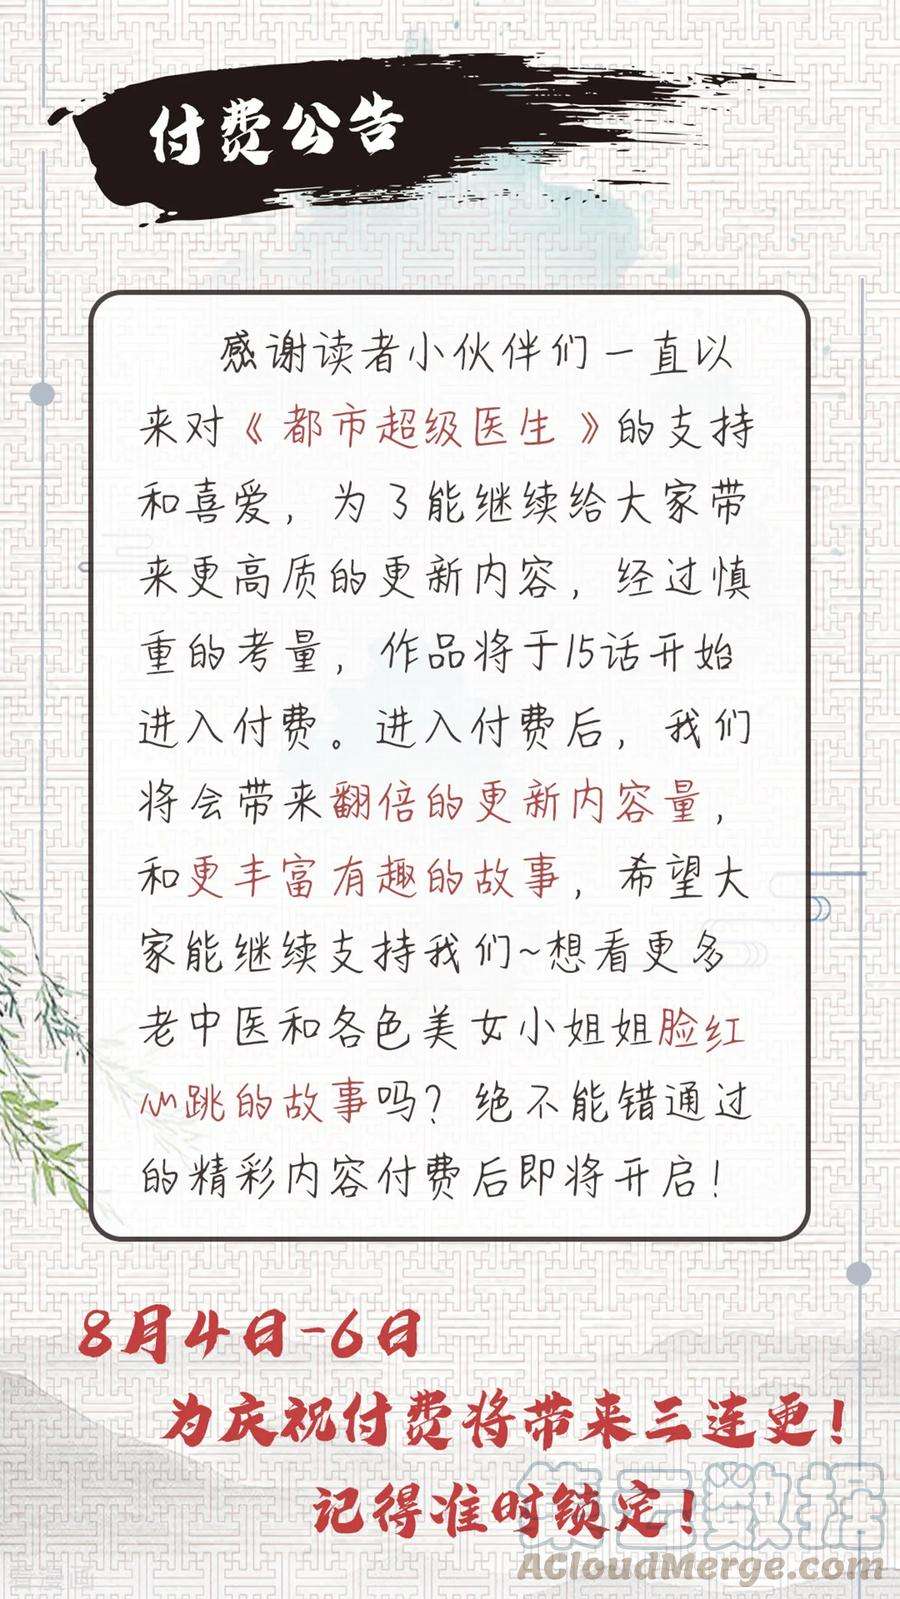 付费公告
感谢读者小伙伴们一直以
来对《都市超级医生》的支持
和喜爱，为了能继续给大家带
来更高质的更新内容，经过慎
重的考量，作品将于15话开始
进入付费。进入付费后，我们
将会带来翻倍的更新内容量，
和更丰富有趣的故事，希望大
家能继续支持我们~想看更多
老中医和各色美女小姐姐脸红
心跳的故事吗？绝不能错通过
的精彩内容付费后即将开启！
8月4日-6日
为庆祝付费将带来三连更！
记得准时锁定！
第三数据
ACloudMerge.com